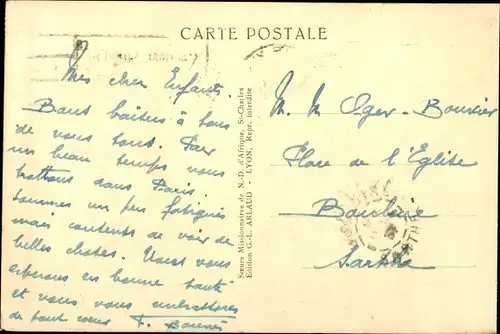 CARTE POSTALE
Mes chers Enfants.
Bons baisers à tous
de vous tous. Par
un beau temps nous
trottons dans Paris.
Sommes un peu fatigués
mais contents de voir de
belles choses. Vous
espérons en bonne santé
et vous embrassons
de tout cœur
Sœurs Missionnaires de N.-D. d'Afrique, St-Charles
Edition G.-L. ARLAUD - LYON, Repr. interdite
M. M Oger-Bouvier
Place de l'Eglise
Bouloire
Sarthe